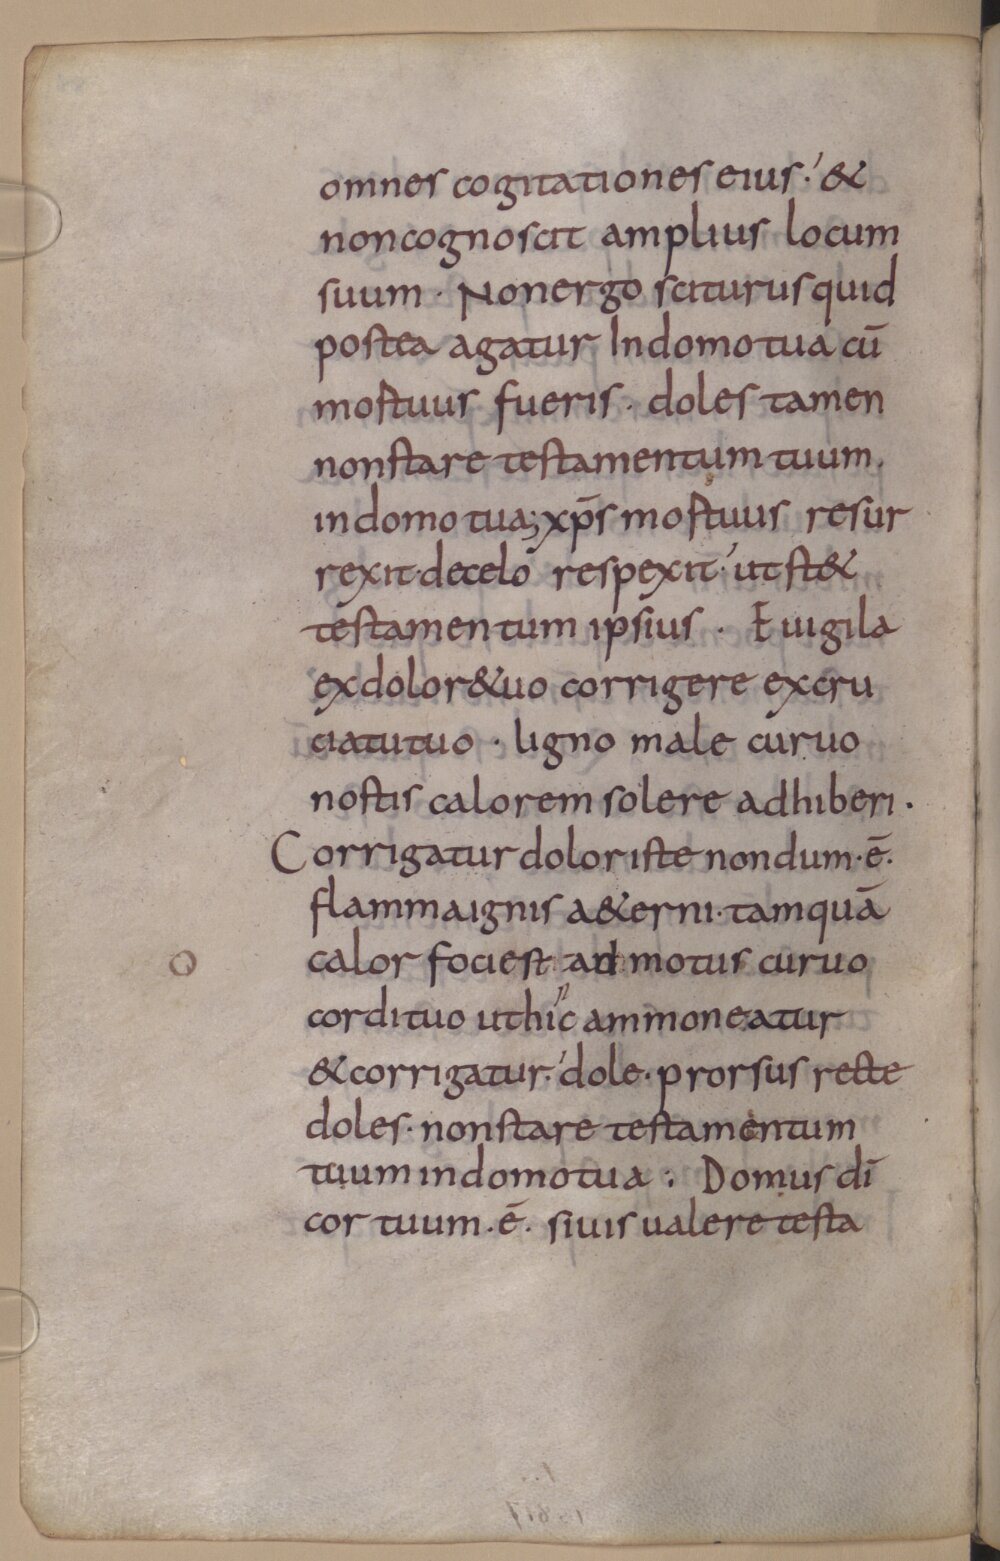 omnes cogitationes eius·' &
noncognoscit amplius locum
suum · Nonergo sciturus quid
postea agatur Indomo tua cū
mortuus fueris · doles tamen
nonstare testamentum tuum.
indomo tua; xp̄s mortuus resur
rexit· decelo respexit·' ut st&
testamentum ipsius · Euigila
exdolor& uo corrigere excru
ciatu tuo · ligno male curuo
nostis calorem solere adhiberi ·
Corrigatur dolor iste nondum · ē ·
flamma ignis a&erni · tamquā
calor foci est ad motus curuo
cordi tuo ut hic ammoneatur
& corrigatur·' dole · prorsus recte
doles · nonstare testamentum
tuum indomo tua : Domus dī
cor tuum · ē · siuis ualere testa